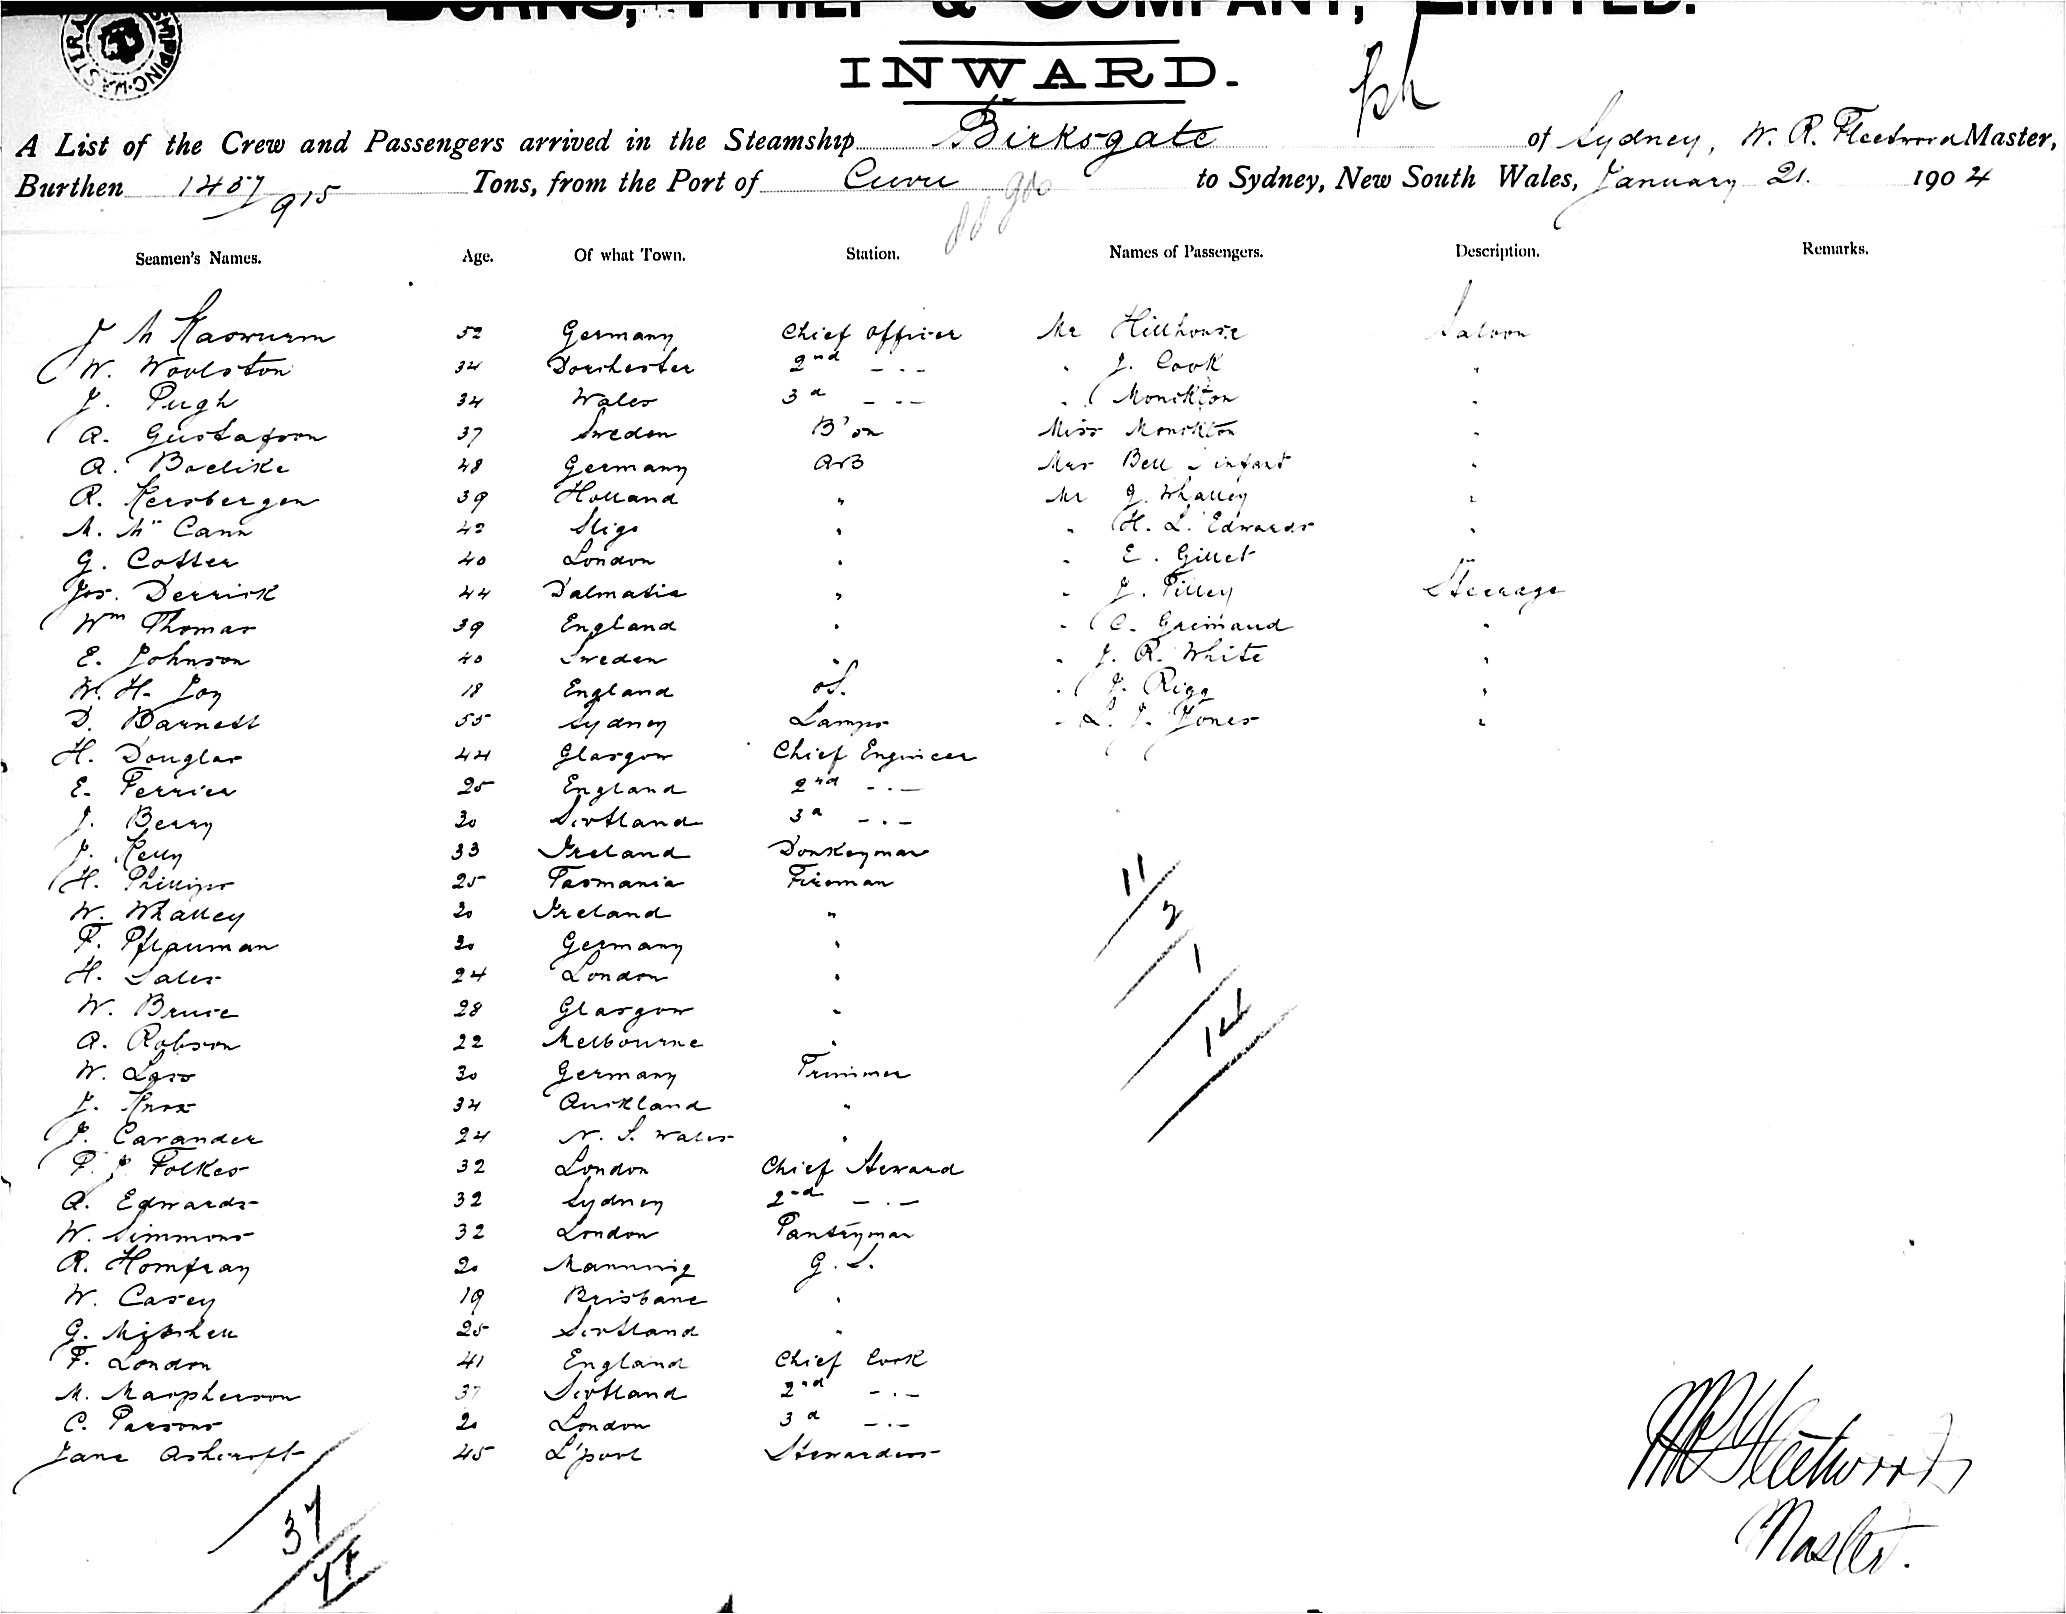 BURNS, PHILP & COMPANY, LIMITED.
INWARD.
A List of the Crew and Passengers arrived in the Steamship Birksgate of Sydney, W. R. Fleetwood Master,
Burthen 1457 915 Tons, from the Port of to Sydney, New South Wales, January 21. 1904
Seamen's Names. Age. Of what Town. Station. Names of Passengers. Description. Remarks.
J M Kaswurm 52 Germany Chief Officer Mr Hillhouse Saloon
W. Woolston 34 Dorchester 2nd -.- " J. Cook "
J. Pugh 34 Wales 3d -.- " Monckton "
A. Gustafson 37 Sweden B'sn Miss Monckton "
A. Boelike 48 Germany AB Mrs Bell & infant "
R. Kersbergen 39 Holland " Mr J. Whalley "
M. McCann 42 Sligo " " H. L. Edwards "
G. Cotter 40 London " " E. Gillet "
Jos. Derrick 44 Dalmatia " " J. Pilley Steerage
Wm Thomas 39 England " " C. Grimaud "
E. Johnson 40 Sweden " " J. R. White "
W. H. Joy 18 England OS. " J. Rigg "
D. Barnett 55 Sydney Lamps " L. J. Jones "
H. Douglas 44 Glasgow Chief Engineer
E. Perrier 25 England 2nd -.-
J. Berry 30 Scotland 3d -.-
J. Kelly 33 Ireland Donkeyman
H. Phillips 25 Tasmania Fireman
W. Whalley 30 Ireland "
F. Pflauman 30 Germany "
H. Sales 24 London "
W. Bruce 28 Glasgow "
A. Robson 22 Melbourne "
W. Lass 30 Germany Trimmer
J. Knox 34 Auckland "
J. Cavander 24 N. S. Wales "
F. J. Folkes 32 London Chief Steward
A. Edwards 32 Sydney 2nd -.-
W. Simmons 32 London Pantryman
R. Homfray 20 Manning G. S.
W. Casey 19 Brisbane "
G. Mitchell 25 Scotland "
F. London 41 England Chief Cook
M. Macpherson 37 Scotland 2nd -.-
C. Parsons 20 London 3d -.-
Jane Ashcroft 45 L'pool Stewardess
11
2
1
14
37
W R Fleetwood
Master.